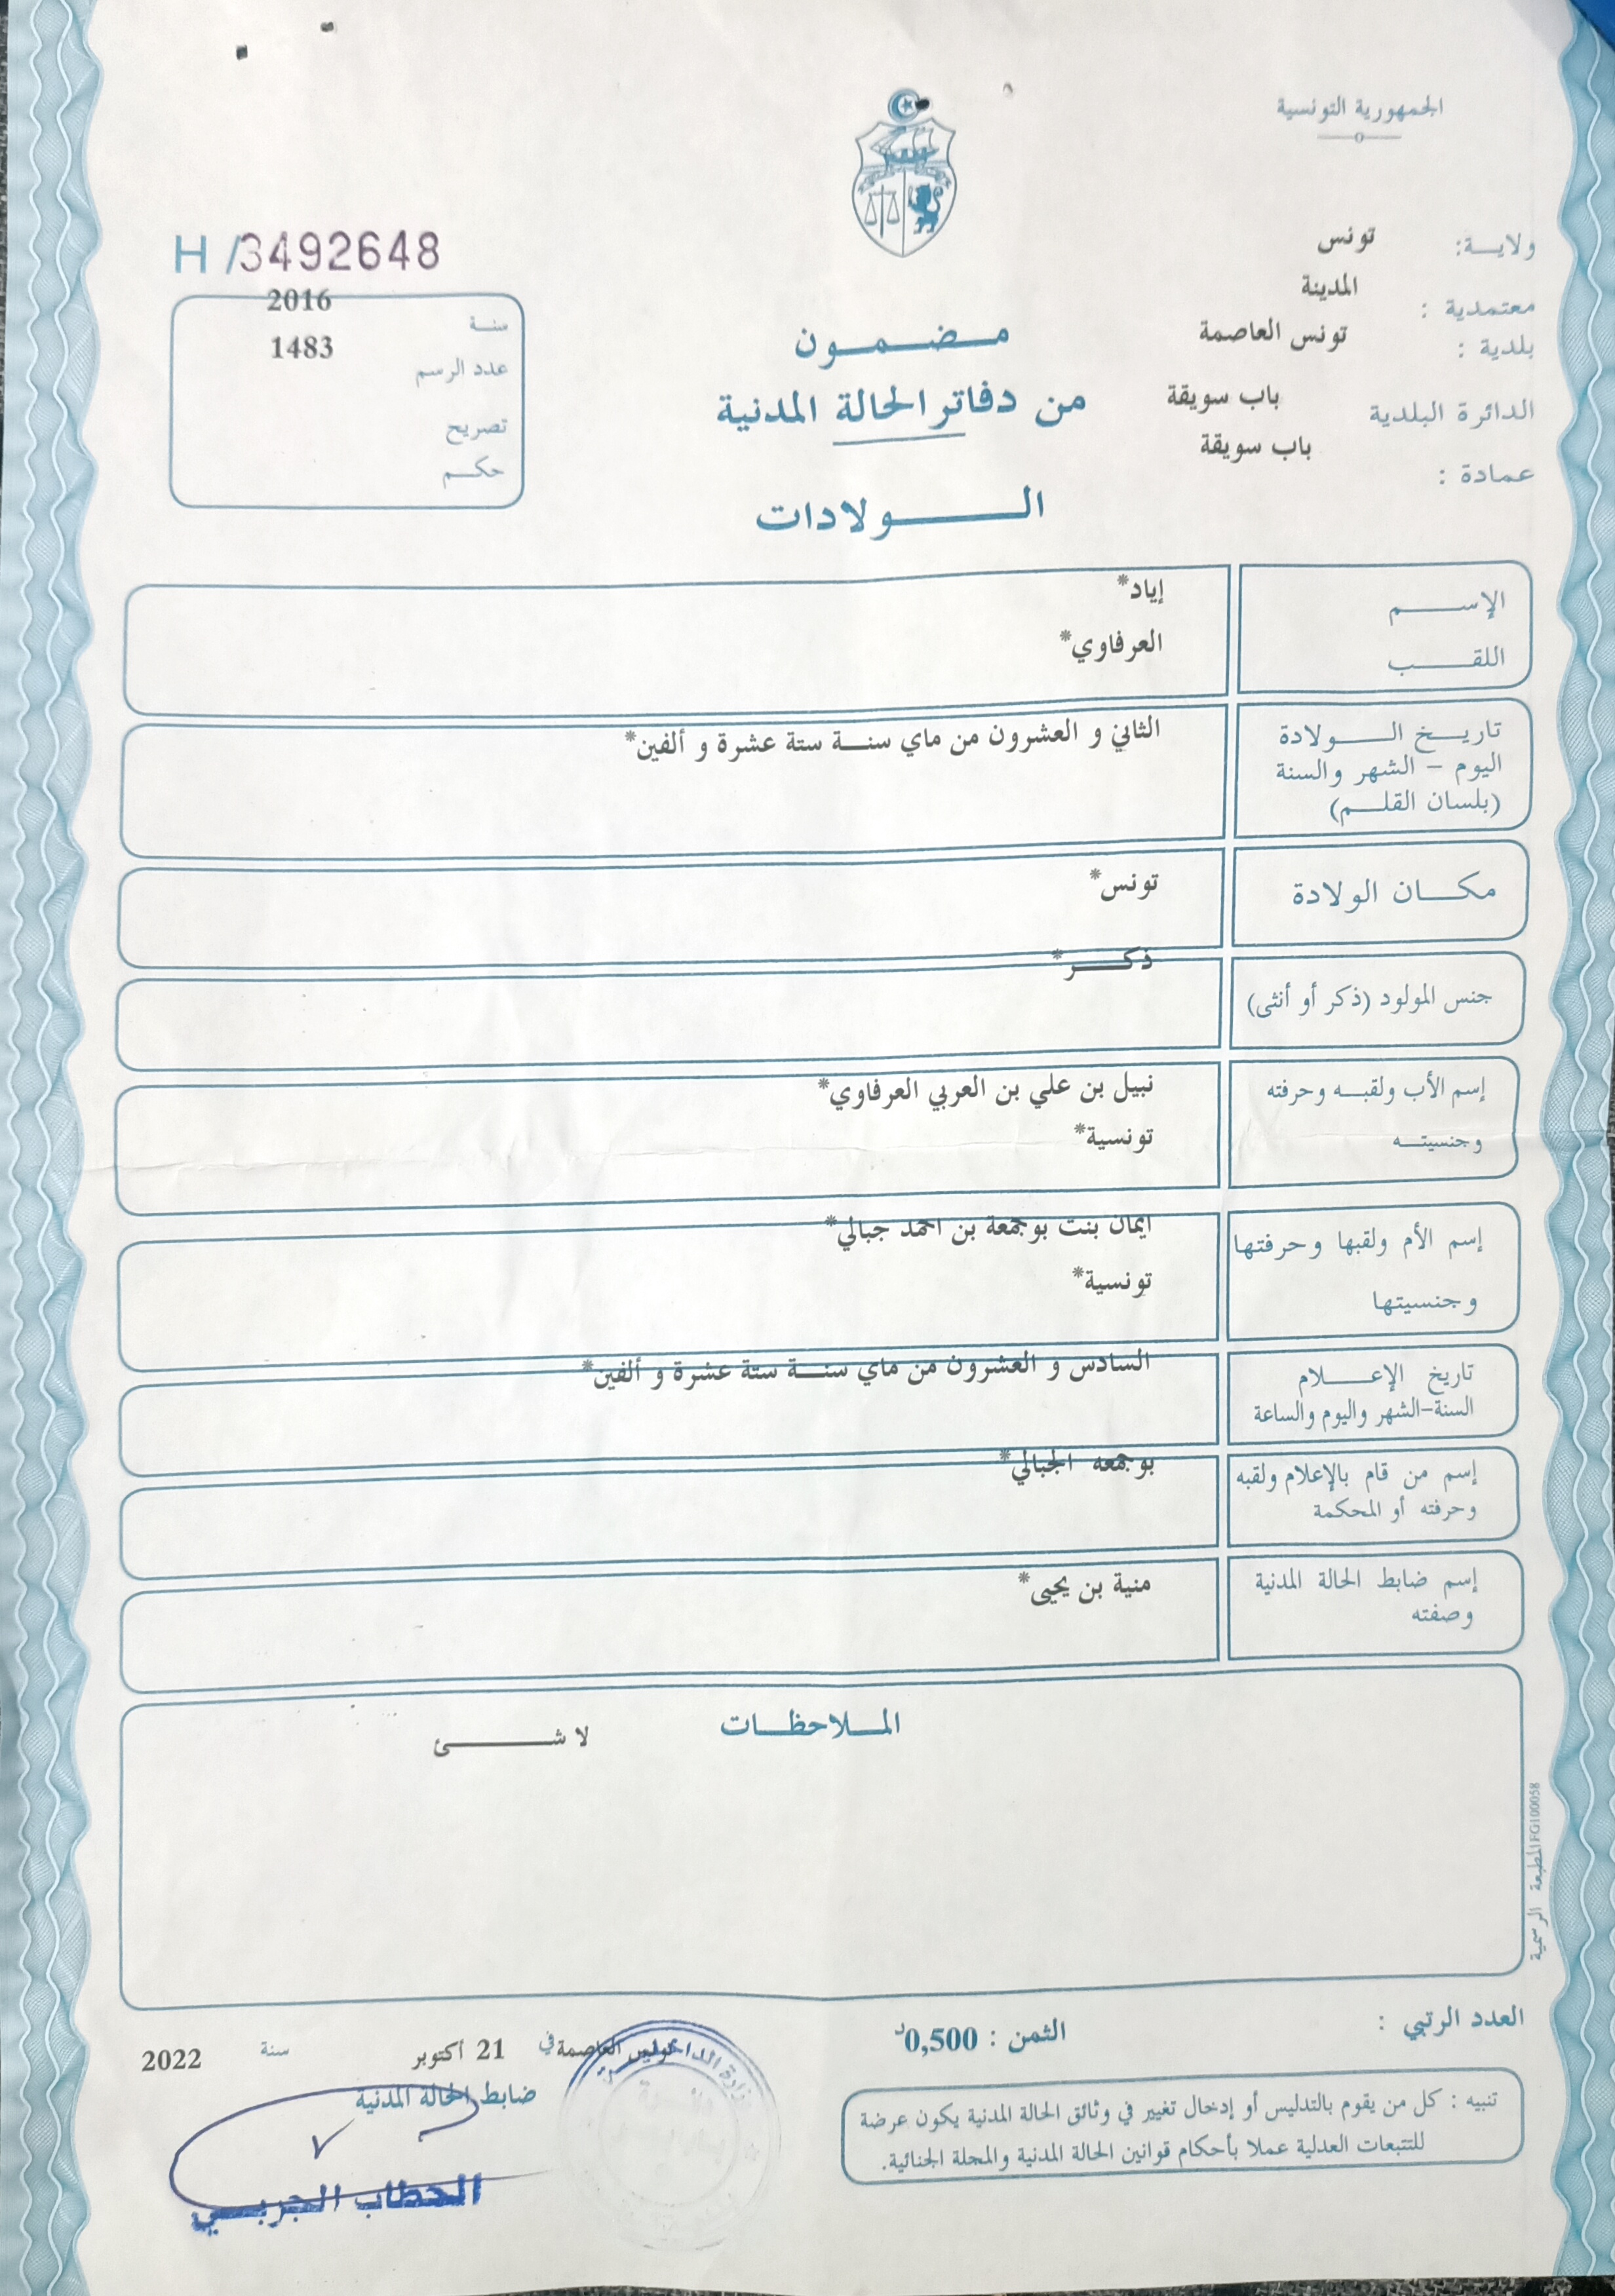 الجمهورية التونسية
ولايـــة: تونس
معتمدية : المدينة
بلدية : تونس العاصمة
الدائرة البلدية باب سويقة
عمادة : باب سويقة
H /3492648
سنـة 2016
عدد الرسم 1483
تصريح
حكـم
مـضـمـون
من دفاتر الحالة المدنية
الـولادات
الإسـم إياد*
اللقـب العرفاوي*
تاريـخ الـولادة الثاني و العشرون من ماي سنـة ستة عشرة و ألفين*
اليوم - الشهر والسنة
(بلسان القلـم)
مكـان الولادة تونس*
جنس المولود (ذكر أو أنثى) ذكـر*
إسم الأب ولقبـه وحرفته نبيل بن علي بن العربي العرفاوي*
وجنسيتـه تونسية*
إسم الأم ولقبها وحرفتها ايمان بنت بوجمعة بن احمد جبالي*
وجنسيتها تونسية*
تاريخ الإعـلام السادس و العشرون من ماي سنـة ستة عشرة و ألفين*
السنة-الشهر واليوم والساعة
إسم من قام بالإعلام ولقبه بوجمعه الجبالي*
وحرفته أو المحكمة
إسم ضابط الحالة المدنية منية بن يحيى*
وصفته
الملاحظـات
لا شـئ
المطبعة الرسمية FG100058
العدد الرتبي :
الثمن : 0,500د
تونس العاصمة في 21 أكتوبر سنة 2022
ضابط الحالة المدنية
الحطاب الجربـي
وزارة الداخلية
تنبيه : كل من يقوم بالتدليس أو إدخال تغيير في وثائق الحالة المدنية يكون عرضة
للتتبعات العدلية عملا بأحكام قوانين الحالة المدنية والمجلة الجنائية.